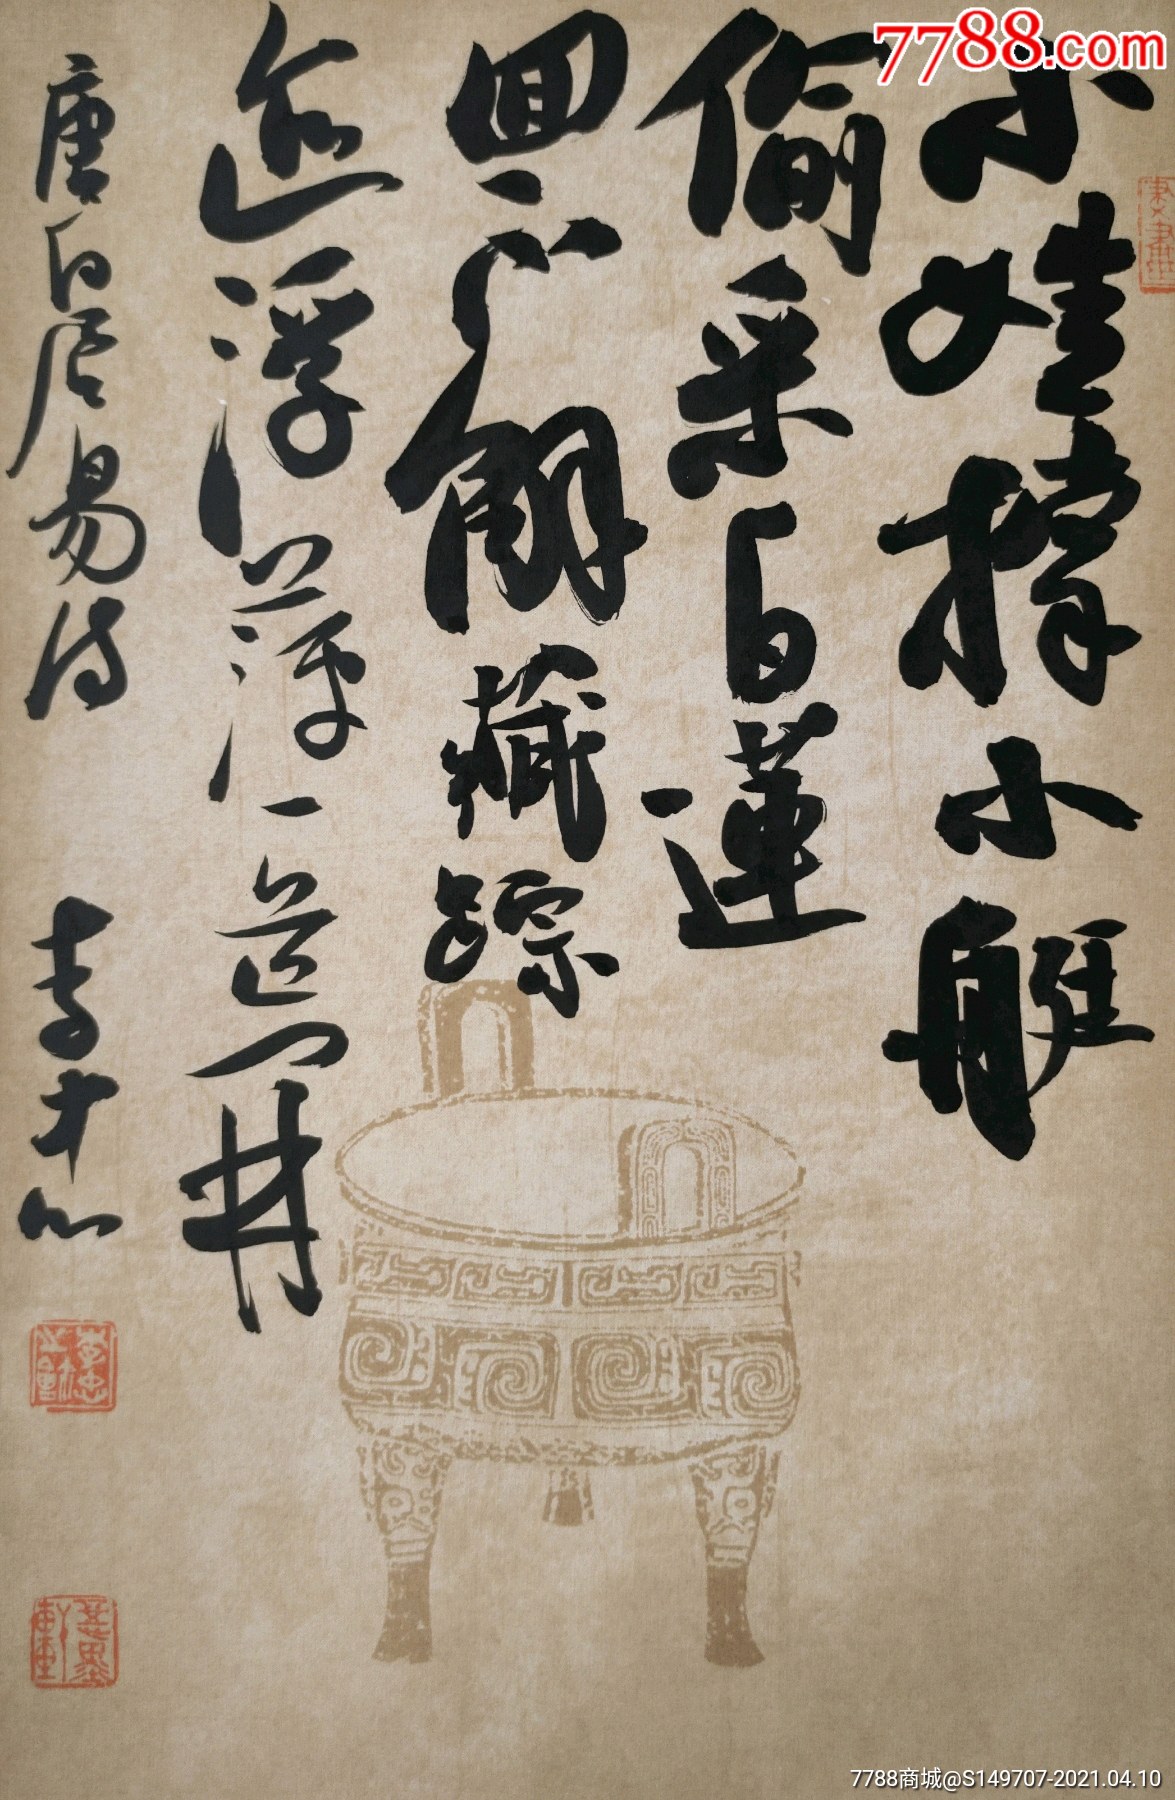 小娃撑小艇
偷采白蓮
回不解藏蹤
迹浮萍一道開
唐白居易诗
7788.com
7788商城@S149707-2021.04.10